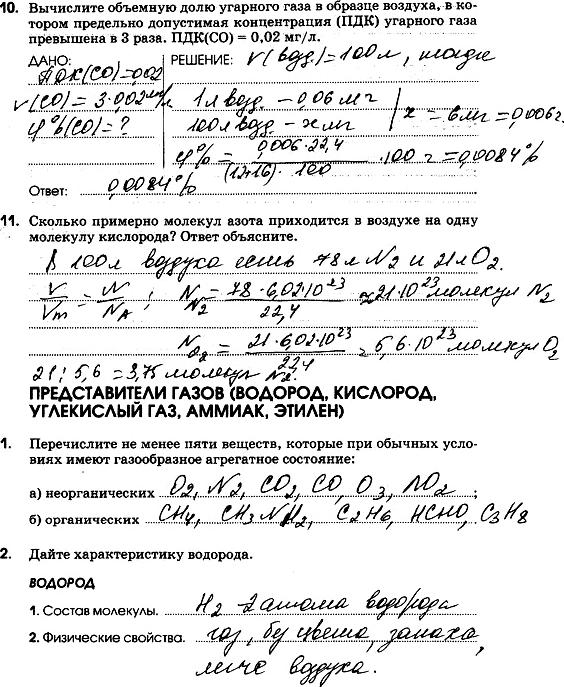 10. Вычислите объемную долю угарного газа в образце воздуха, в ко-
тором предельно допустимая концентрация (ПДК) угарного газа
превышена в 3 раза. ПДК(CO) = 0,02 мг/л.
ДАНО: РЕШЕНИЕ: V(возд.)=100 л, тогда
ПДК(CO)=0,02
V(CO) = 3·0,02 мг/л
φ%(CO)=?
1 л возд – 0,06 мг
100 л возд – x мг
x = 6 мг = 0,006 г.
φ% = 0,006·22,4 / (12+16)·100 · 100 г = 0,0084%
Ответ: 0,0084%
11. Сколько примерно молекул азота приходится в воздухе на одну
молекулу кислорода? Ответ объясните.
В 100 л воздуха есть 78 л N2 и 21 л O2.
V/Vm = N/NA ; N N2 = 78·6,02·10^23 / 22,4 ≈ 21·10^23 молекул N2
N O2 = 21·6,02·10^23 / 22,4 = 5,6·10^23 молекул O2
21 : 5,6 = 3,75 молекул N2.
ПРЕДСТАВИТЕЛИ ГАЗОВ (ВОДОРОД, КИСЛОРОД,
УГЛЕКИСЛЫЙ ГАЗ, АММИАК, ЭТИЛЕН)
1. Перечислите не менее пяти веществ, которые при обычных усло-
виях имеют газообразное агрегатное состояние:
а) неорганических O2, N2, CO2, CO, O3, NO2 ;
б) органических CH4, CH3NH2, C2H6, HCHO, C3H8
2. Дайте характеристику водорода.
ВОДОРОД
1. Состав молекулы. H2 – 2 атома водорода
2. Физические свойства. газ, без цвета, запаха,
легче воздуха.